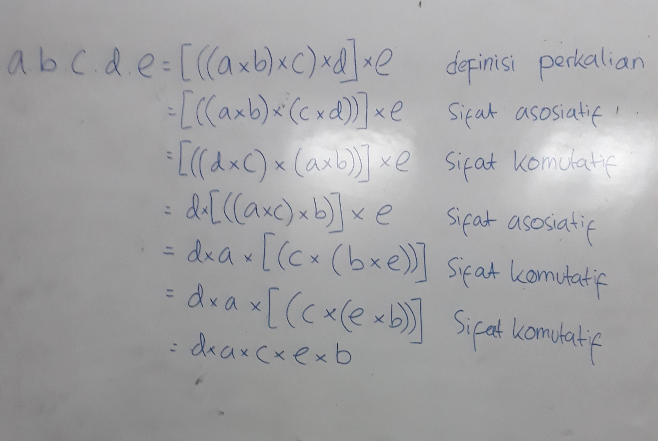 a b c . d . e = [((a×b)×c)×d]×e definisi perkalian
= [((a×b)×(c×d))]×e Sifat asosiatif
= [((d×c)×(a×b))]×e Sifat komutatif
= d×[((a×c)×b)]×e Sifat asosiatif
= d×a×[(c×(b×e))] Sifat komutatif
= d×a×[(c×(e×b))] Sifat komutatif
= d×a×c×e×b